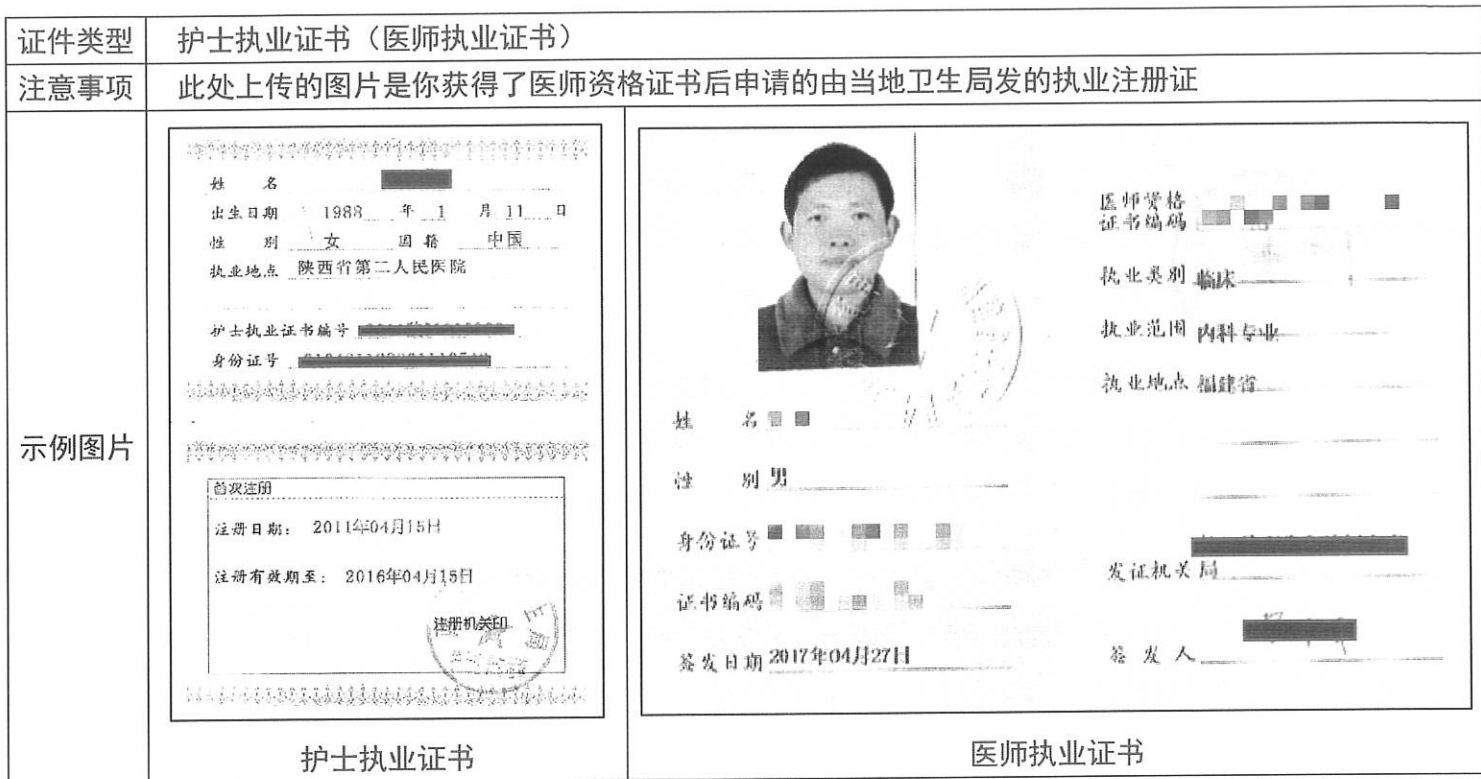 证件类型 护士执业证书（医师执业证书）
注意事项 此处上传的图片是你获得了医师资格证书后申请的由当地卫生局发的执业注册证
示例图片
姓 名
出生日期 1988 年 1 月 11 日
性 别 女 国籍 中国
执业地点 陕西省第二人民医院
护士执业证书编号
身份证号
首次注册
注册日期： 2011年04月15日
注册有效期至： 2016年04月15日
注册机关印
护士执业证书
姓 名
性 别 男
身份证号
证书编码
签发日期 2017年04月27日
医师资格
证书编码
执业类别 临床
执业范围 内科专业
执业地点 福建省
发证机关 局
签发人
医师执业证书